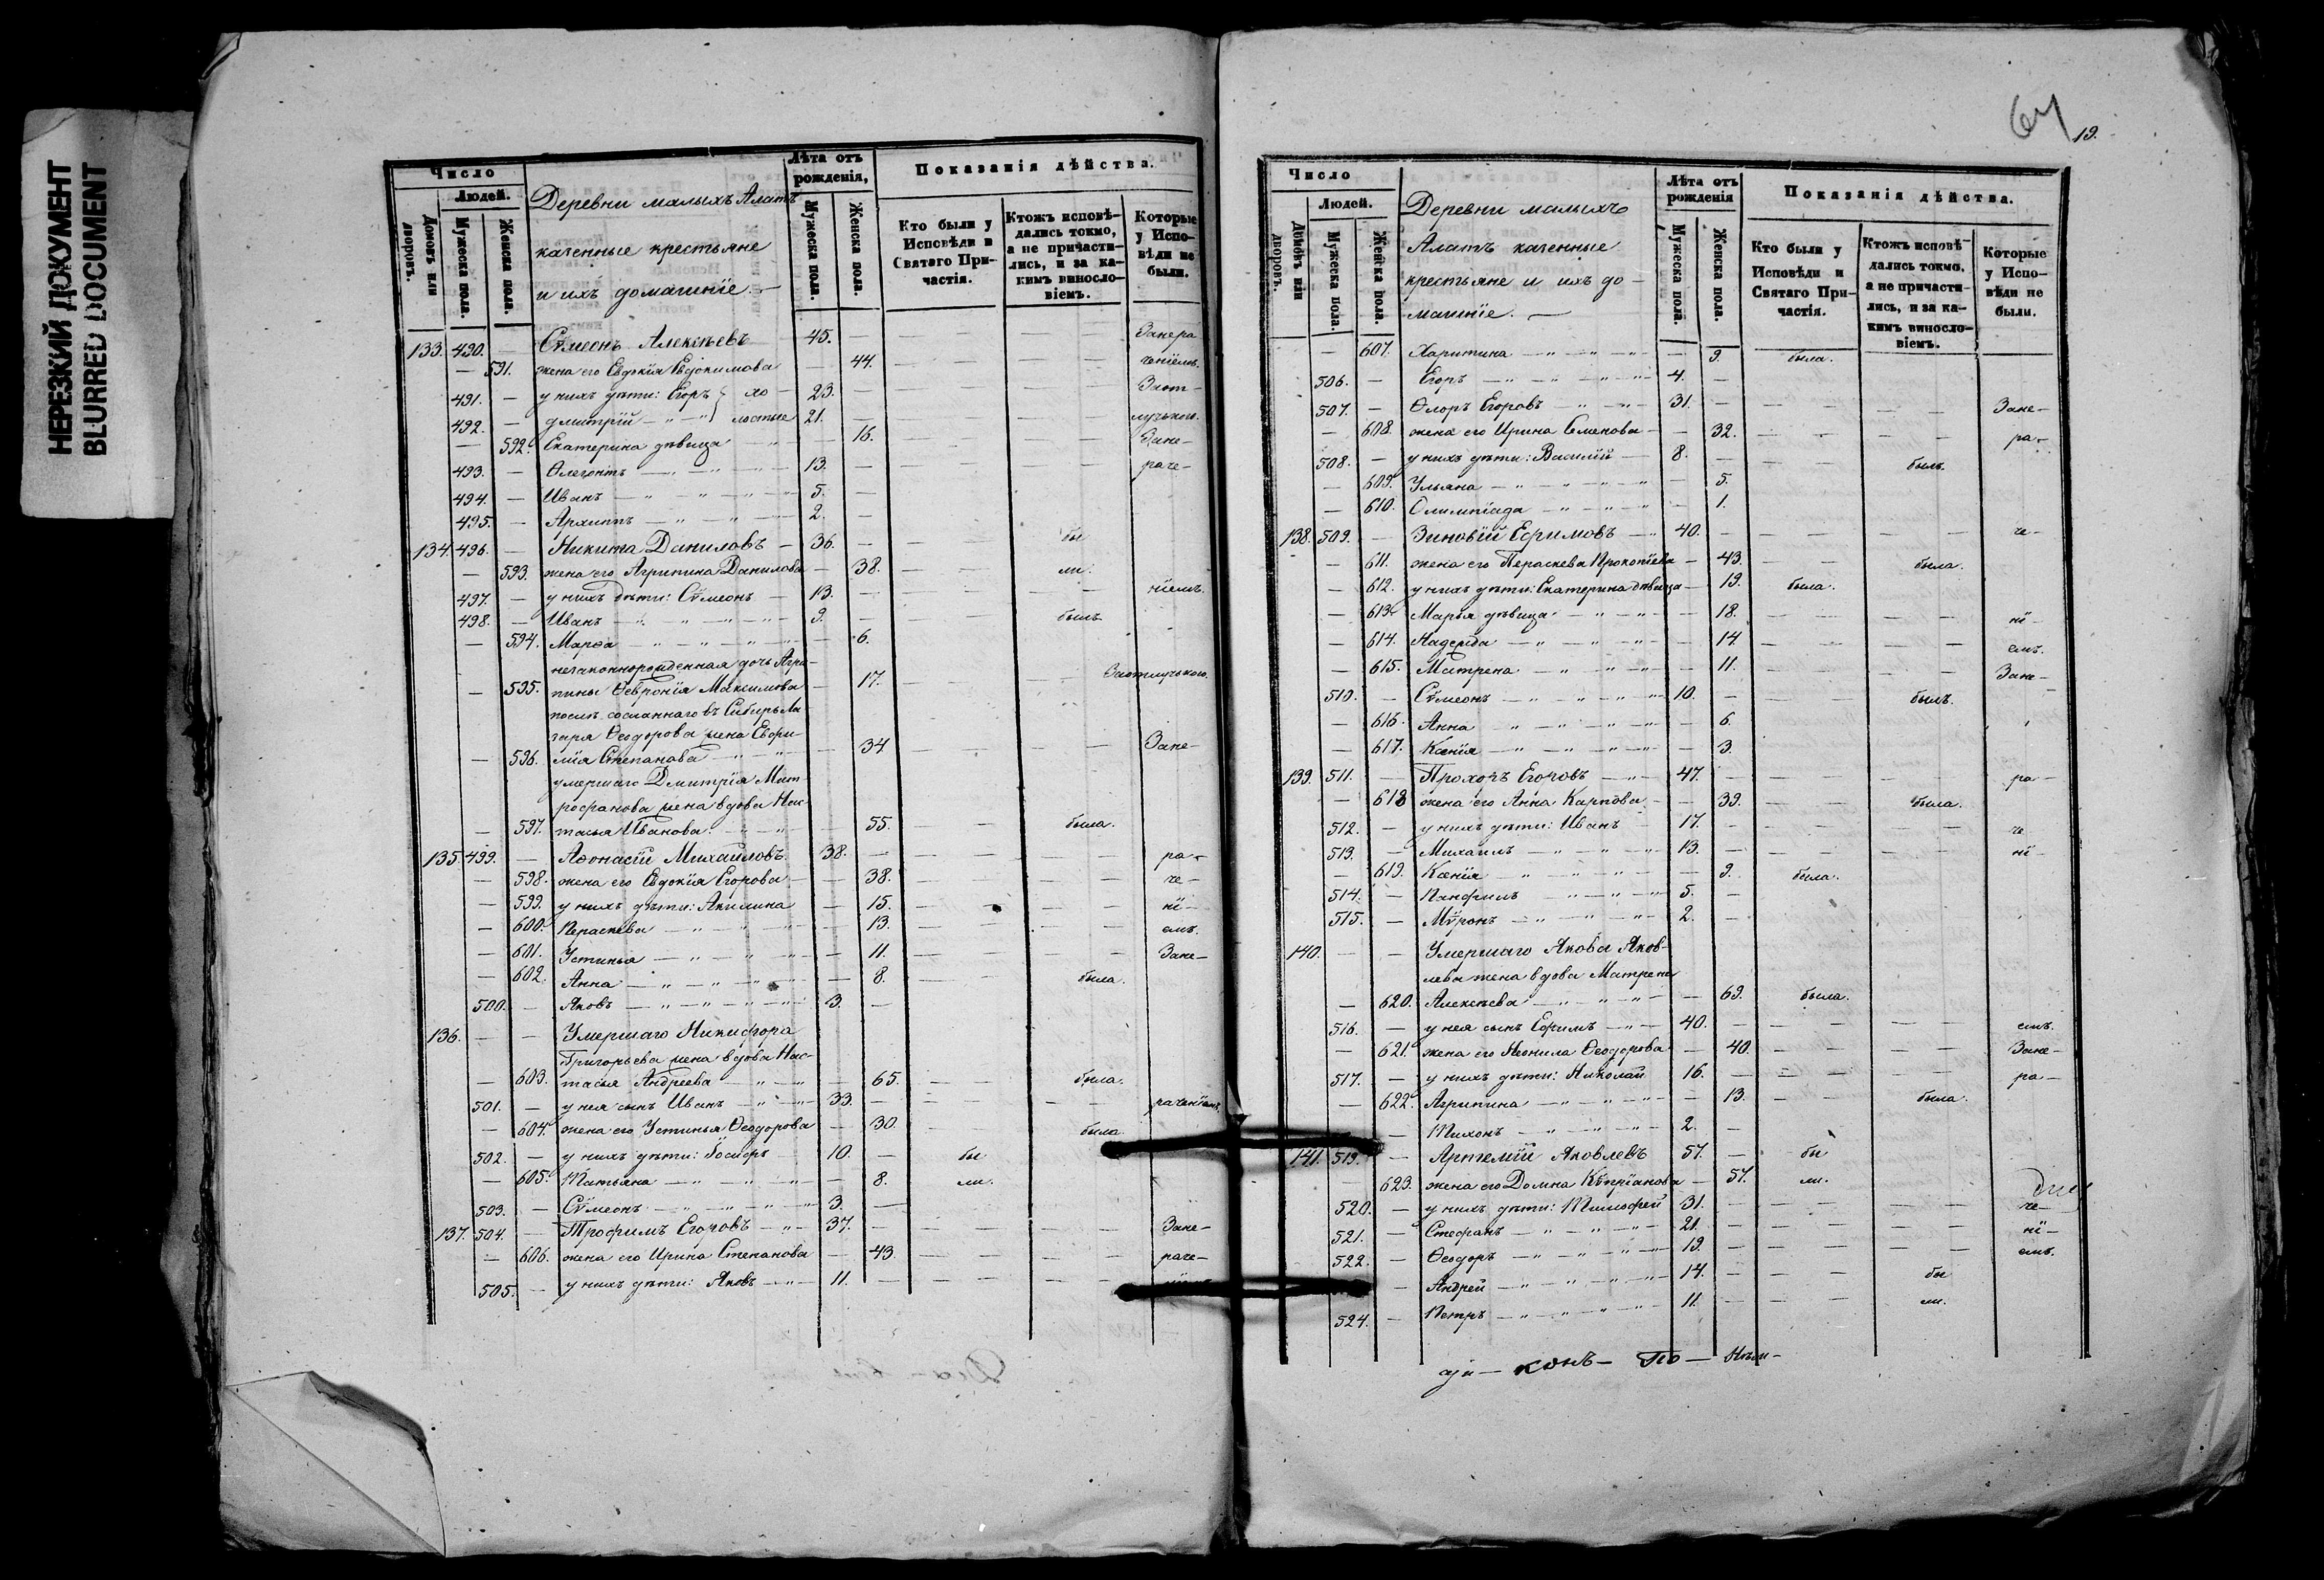 НЕРЕЗКИЙ ДОКУМЕНТ
BLURRED DOCUMENT
Число
Людей.
Домовъ или дворовъ.
Мужеска пола.
Женска пола.
Деревни малыхъ Алатъ
казенные крестьяне
и ихъ домашніе. —
Лѣта отъ рожденія,
Мужеска пола.
Женска пола.
Показанія дѣйства.
Кто были у Исповѣди и Святаго Причастія.
Ктожъ исповѣдались токмо, а не причастились, и за какимъ винословіемъ.
Которые у Исповѣди не были.
133. 490. — Сѵмеонъ Алексѣевъ 45. — — — Занера
— 591. жена его Евдокія Евдокимова — 44. — — ченіемъ.
491. — у нихъ дѣти: Егоръ } хо — 23. — — — Заот-
492. — Дмитрій — " — " } лостые 21. — — — лучькою.
— 592. Екатерина дѣвица " — 16. — — Зане-
493. — Ѳлегонтъ — " — " — 13. — — — раче-
494. — Иванъ — " — " — " — 5. —
495. — Архиппъ — " — " — 2. —
134. 496. — Никита Даниловъ — 36. — — бы
— 593. жена его Агрипина Данилова — 38. — ли.
497. — у нихъ дѣти: Сѵмеонъ — 13. — — — ніемъ.
498. — Иванъ — " — " — " — 9. — — былъ
— 594. Марѳа — " — " — " — 6.
незаконнорожденная дочь Агри-
— 595. пины Ѳевронія Максимова — 17. — — Заотлучькою.
послѣ сосланнаго въ Сибирь Ла-
заря Ѳеодорова жена Евфи-
— 596. мія Степанова — " — " — 34 — — Зане-
умершаго Дмитрія Мит-
рофанова жена вдова Нас-
— 597. тасья Иванова. — " — " — 55. — была.
135. 499. — Аѳонасій Михайловъ. 38. — — — ра-
— 598. жена его Евдокія Егорова — 38. — — че-
— 599. у нихъ дѣти: Акилина — 15. — — ні-
— 600. Пераскева — " — " — " — 13. — — емъ.
— 601. Устинья — " — " — " — 11. — — Зане-
— 602. Анна — " — " — " — 8. — была.
500. — Яковъ — " — " — " — 3 —
136. — — Умершаго Никифора
Григорьева жена вдова Нас-
— 603. тасья Андреева — " — " — 65. — была.
501. — у нея сынъ Иванъ — " — " 33. — — — раченіемъ
— 604. жена его Устинья Ѳеодорова — 30. — была
502. — у нихъ дѣти: Іосифъ 10. — бы
— 605. Татьяна — " — " — " — 8. ли.
503. — Сѵмеонъ — " — " — " 3. —
137. 504. — Трофимъ Егоровъ — " — 37. — — — Зане-
— 606. жена его Ирина Степанова — 43. — — раче-
505. — у нихъ дѣти: Яковъ — " — 11. — — —
64
19.
Число
Людей.
Домовъ или дворовъ.
Мужеска пола.
Женска пола.
Деревни малыхъ
Алатъ казенные
крестьяне и ихъ до-
машніе. —
Лѣта отъ рожденія
Мужеска пола.
Женска пола.
Показанія дѣйства.
Кто были у Исповѣди и Святаго Причастія.
Ктожъ исповѣдались токмо, а не причастились, и за какимъ винословіемъ.
Которые у Исповѣди не были.
— 607. Харитина — " — " — " — 9. была.
506. — Егоръ — " — " — " — " 4. —
507. — Ѳлоръ Егоровъ — " — " — 31. — — — Зане-
— 608. жена его Ирина Семенова — 32. — — ра-
508. — у нихъ дѣти: Василій — 8. — — былъ.
— 609. Ульяна — " — " — " — " — 5.
— 610. Олимпіада — " — " — " — 1.
138. 509. — Зиновій Ефимовъ — " 40. — — — че-
— 611. жена его Пераскева Прокопіева — 43. — была.
— 612. у нихъ дѣти: Екатерина дѣвица — 19. была.
— 613. Марья дѣвица — " — " — 18. — — ні-
— 614. Надежда — " — " — " — 14. — — емъ.
— 615. Матрена — " — " — " — 11. — — Зане-
510. — Сѵмеонъ — " — " — " — " 10. — — былъ.
— 616. Анна — " — " — " — " — 6.
— 617. Ксенія — " — " — " — " — 3.
139. 511. — Прохоръ Егоровъ — " — 47. — — — ра-
— 618 жена его Анна Карпова — 39. — была.
512. — у нихъ дѣти: Иванъ 17. — — — че
513. — Михаилъ — " — " — " 13. — — — ні-
— 619. Ксенія — " — " — " — " — 9. была.
514. — Панфилъ — " — " — " 5. —
515. — Мѵронъ — " — " — " 2. —
140. — — Умершаго Якова Яков-
лева жена вдова Матрена
— 620. Алексѣева — " — " — " — 69. была.
516. — у нея сынъ Ефимъ — " — 40. — — — емъ.
— 621. жена его Неонила Ѳеодорова — 40. — — Зане-
517. — у нихъ дѣти: Николай 16. — — — ра-
— 622. Агрипина — " — " — " — 13. — была.
— Тихонъ — " — " — " 2. —
141. 519. — Артемій Яковлевъ 57. — бы
— 623. жена его Домна Кѵпріанова — 57. ли.
520. — у нихъ дѣти: Тимофей 31. — — — че-
521. — Стефанъ — " — " — " 21. — — — ні-
522. — Ѳеодоръ — " — " — " 19. — — — емъ.
— Андрей — " — " — " 14. — — бы
524. — Петръ — " — " — " — 11. — — ли.